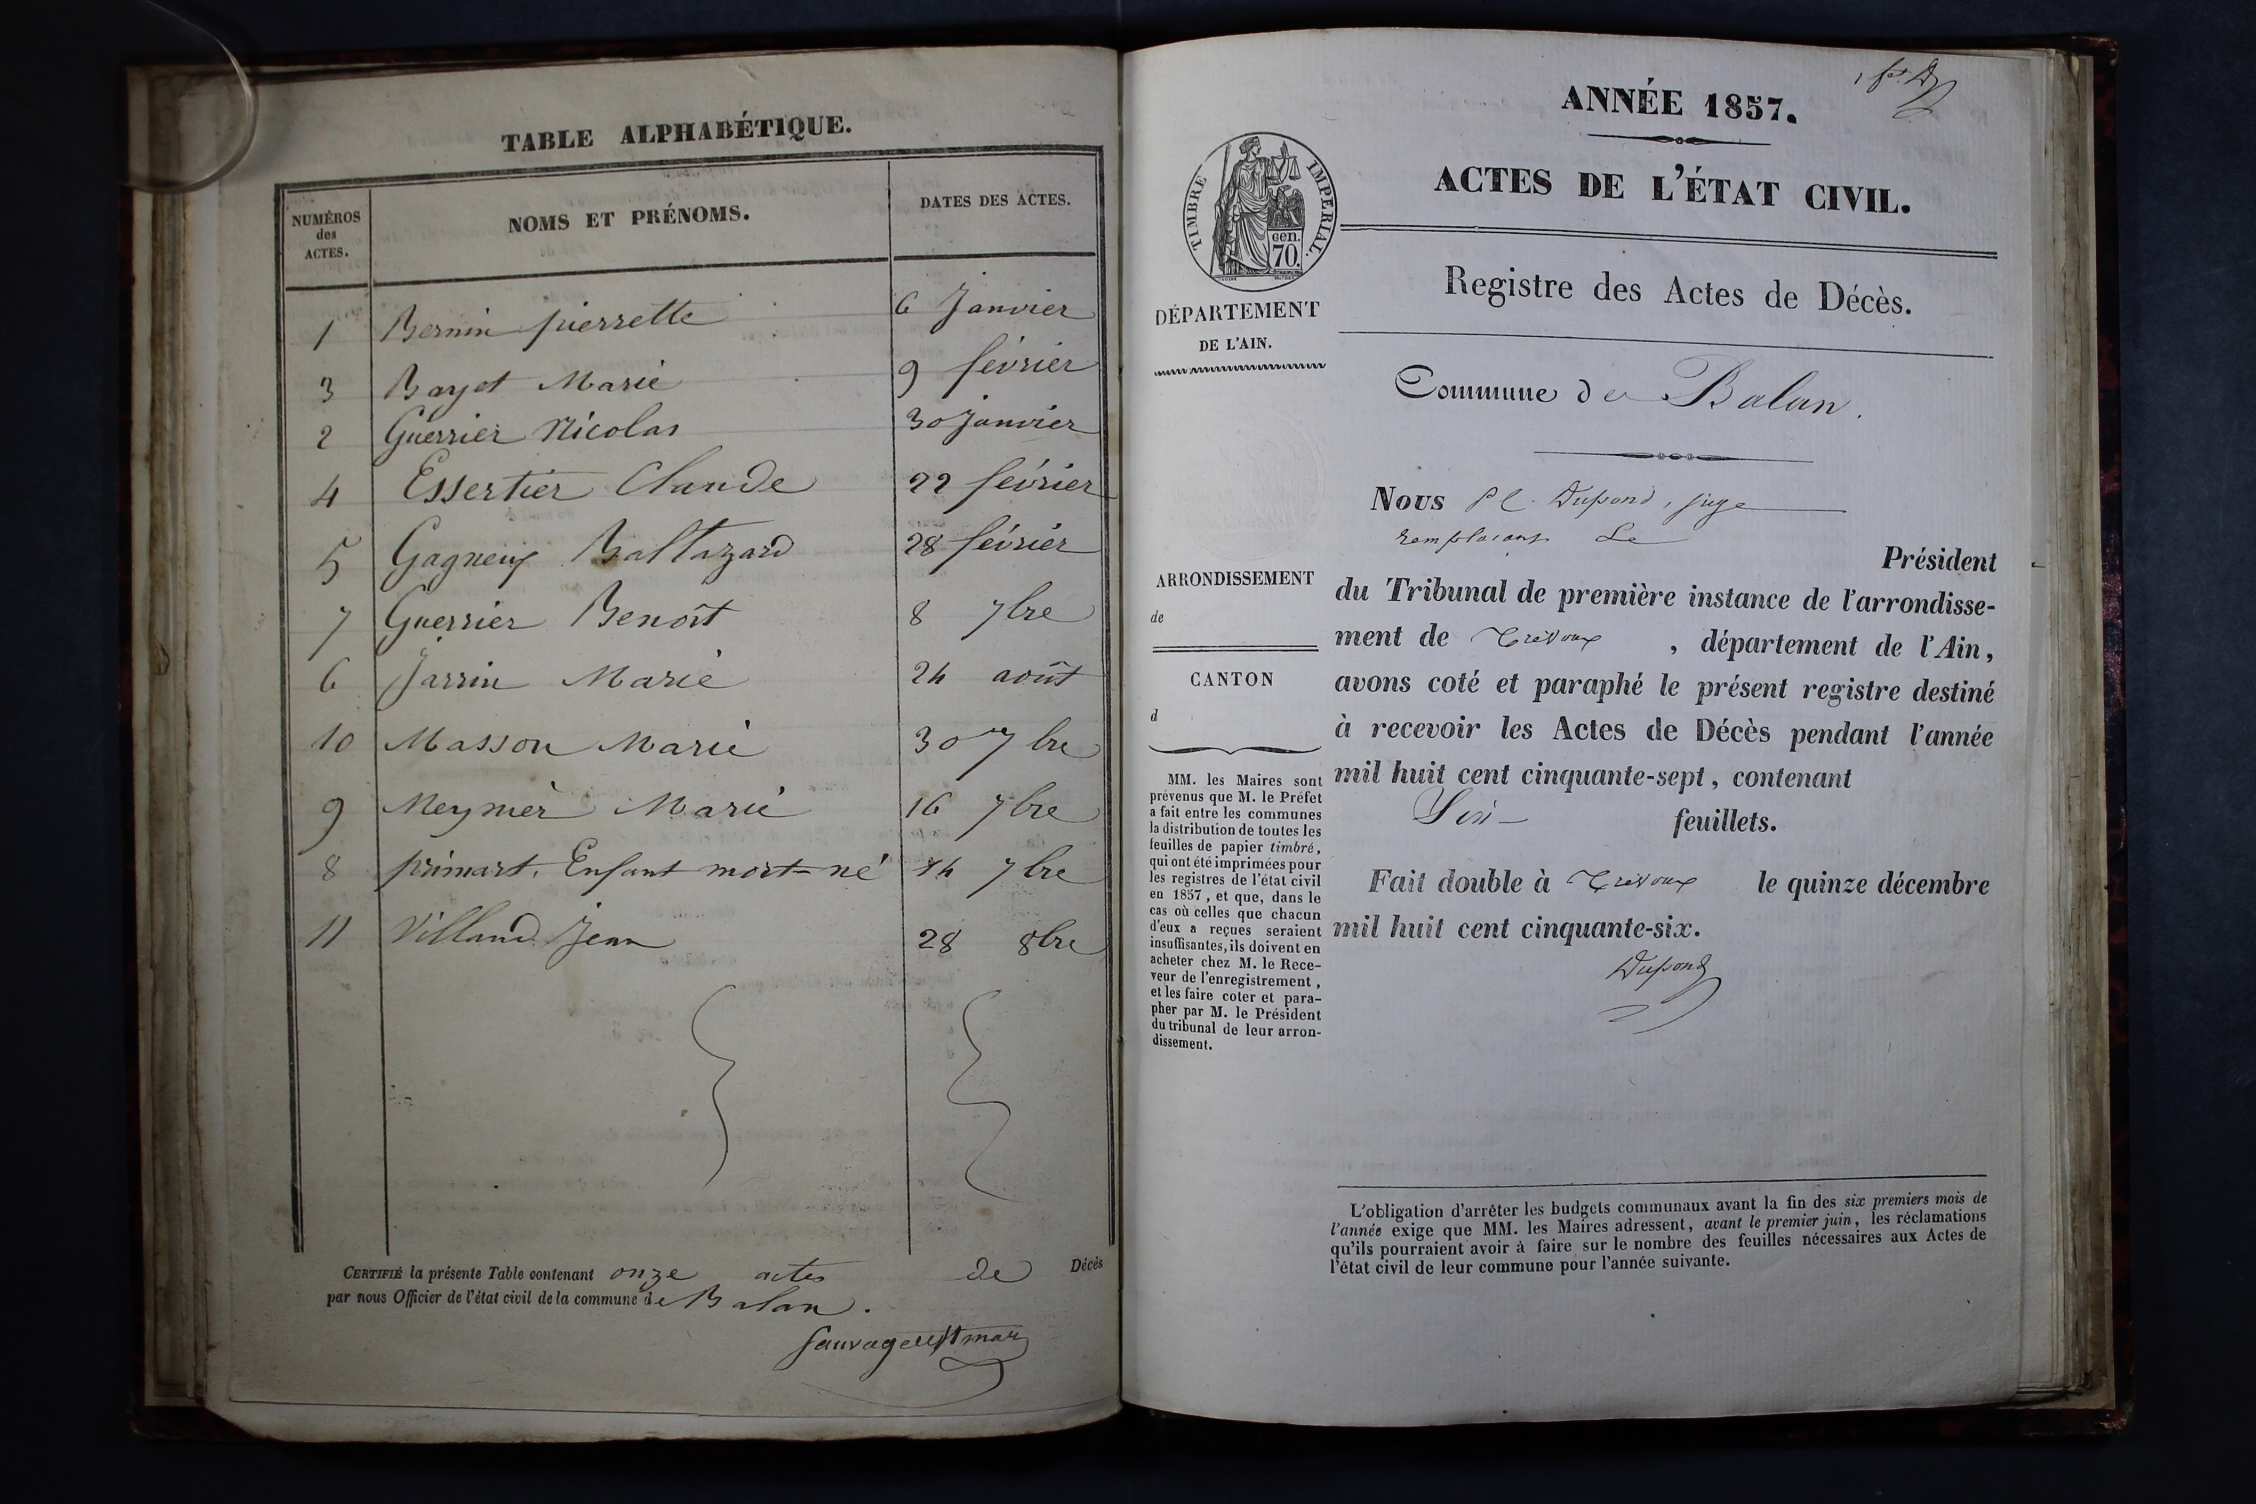 TABLE ALPHABÉTIQUE.
NUMÉROS des ACTES. NOMS ET PRÉNOMS. DATES DES ACTES.
1 Bernin pierrette 6 Janvier
3 Bayet Marie 9 février
2 Guerrier Nicolas 30 janvier
4 Essertier Claude 22 février
5 Gagneux Baltazard 28 février
7 Guerrier Benoît 8 7bre
6 Jarrin Marie 24 août
10 Masson Marie 30 7bre
9 Meynier Marie 16 7bre
8 primart. Enfant mort-né 14 7bre
11 Villand Jean 28 8bre
CERTIFIÉ la présente Table contenant onze actes de Décès
par nous Officier de l'état civil de la commune de Balan.
ANNÉE 1857.
ACTES DE L'ÉTAT CIVIL.
TIMBRE IMPÉRIAL.
cen. 70.
Registre des Actes de Décès.
DÉPARTEMENT
DE L'AIN.
Commune de Balan.
Nous Dupond, juge
remplaçant Le
Président
ARRONDISSEMENT
de
CANTON
d
du Tribunal de première instance de l'arrondisse-
ment de Trévoux , département de l'Ain,
avons coté et paraphé le présent registre destiné
à recevoir les Actes de Décès pendant l'année
mil huit cent cinquante-sept, contenant
Six feuillets.
Fait double à Trévoux le quinze décembre
mil huit cent cinquante-six.
Dupond
MM. les Maires sont
prévenus que M. le Préfet
a fait entre les communes
la distribution de toutes les
feuilles de papier timbré,
qui ont été imprimées pour
les registres de l'état civil
en 1857, et que, dans le
cas où celles que chacun
d'eux a reçues seraient
insuffisantes, ils doivent en
acheter chez M. le Rece-
veur de l'enregistrement,
et les faire coter et para-
pher par M. le Président
du tribunal de leur arron-
dissement.
L'obligation d'arrêter les budgets communaux avant la fin des six premiers mois de
l'année exige que MM. les Maires adressent, avant le premier juin, les réclamations
qu'ils pourraient avoir à faire sur le nombre des feuilles nécessaires aux Actes de
l'état civil de leur commune pour l'année suivante.